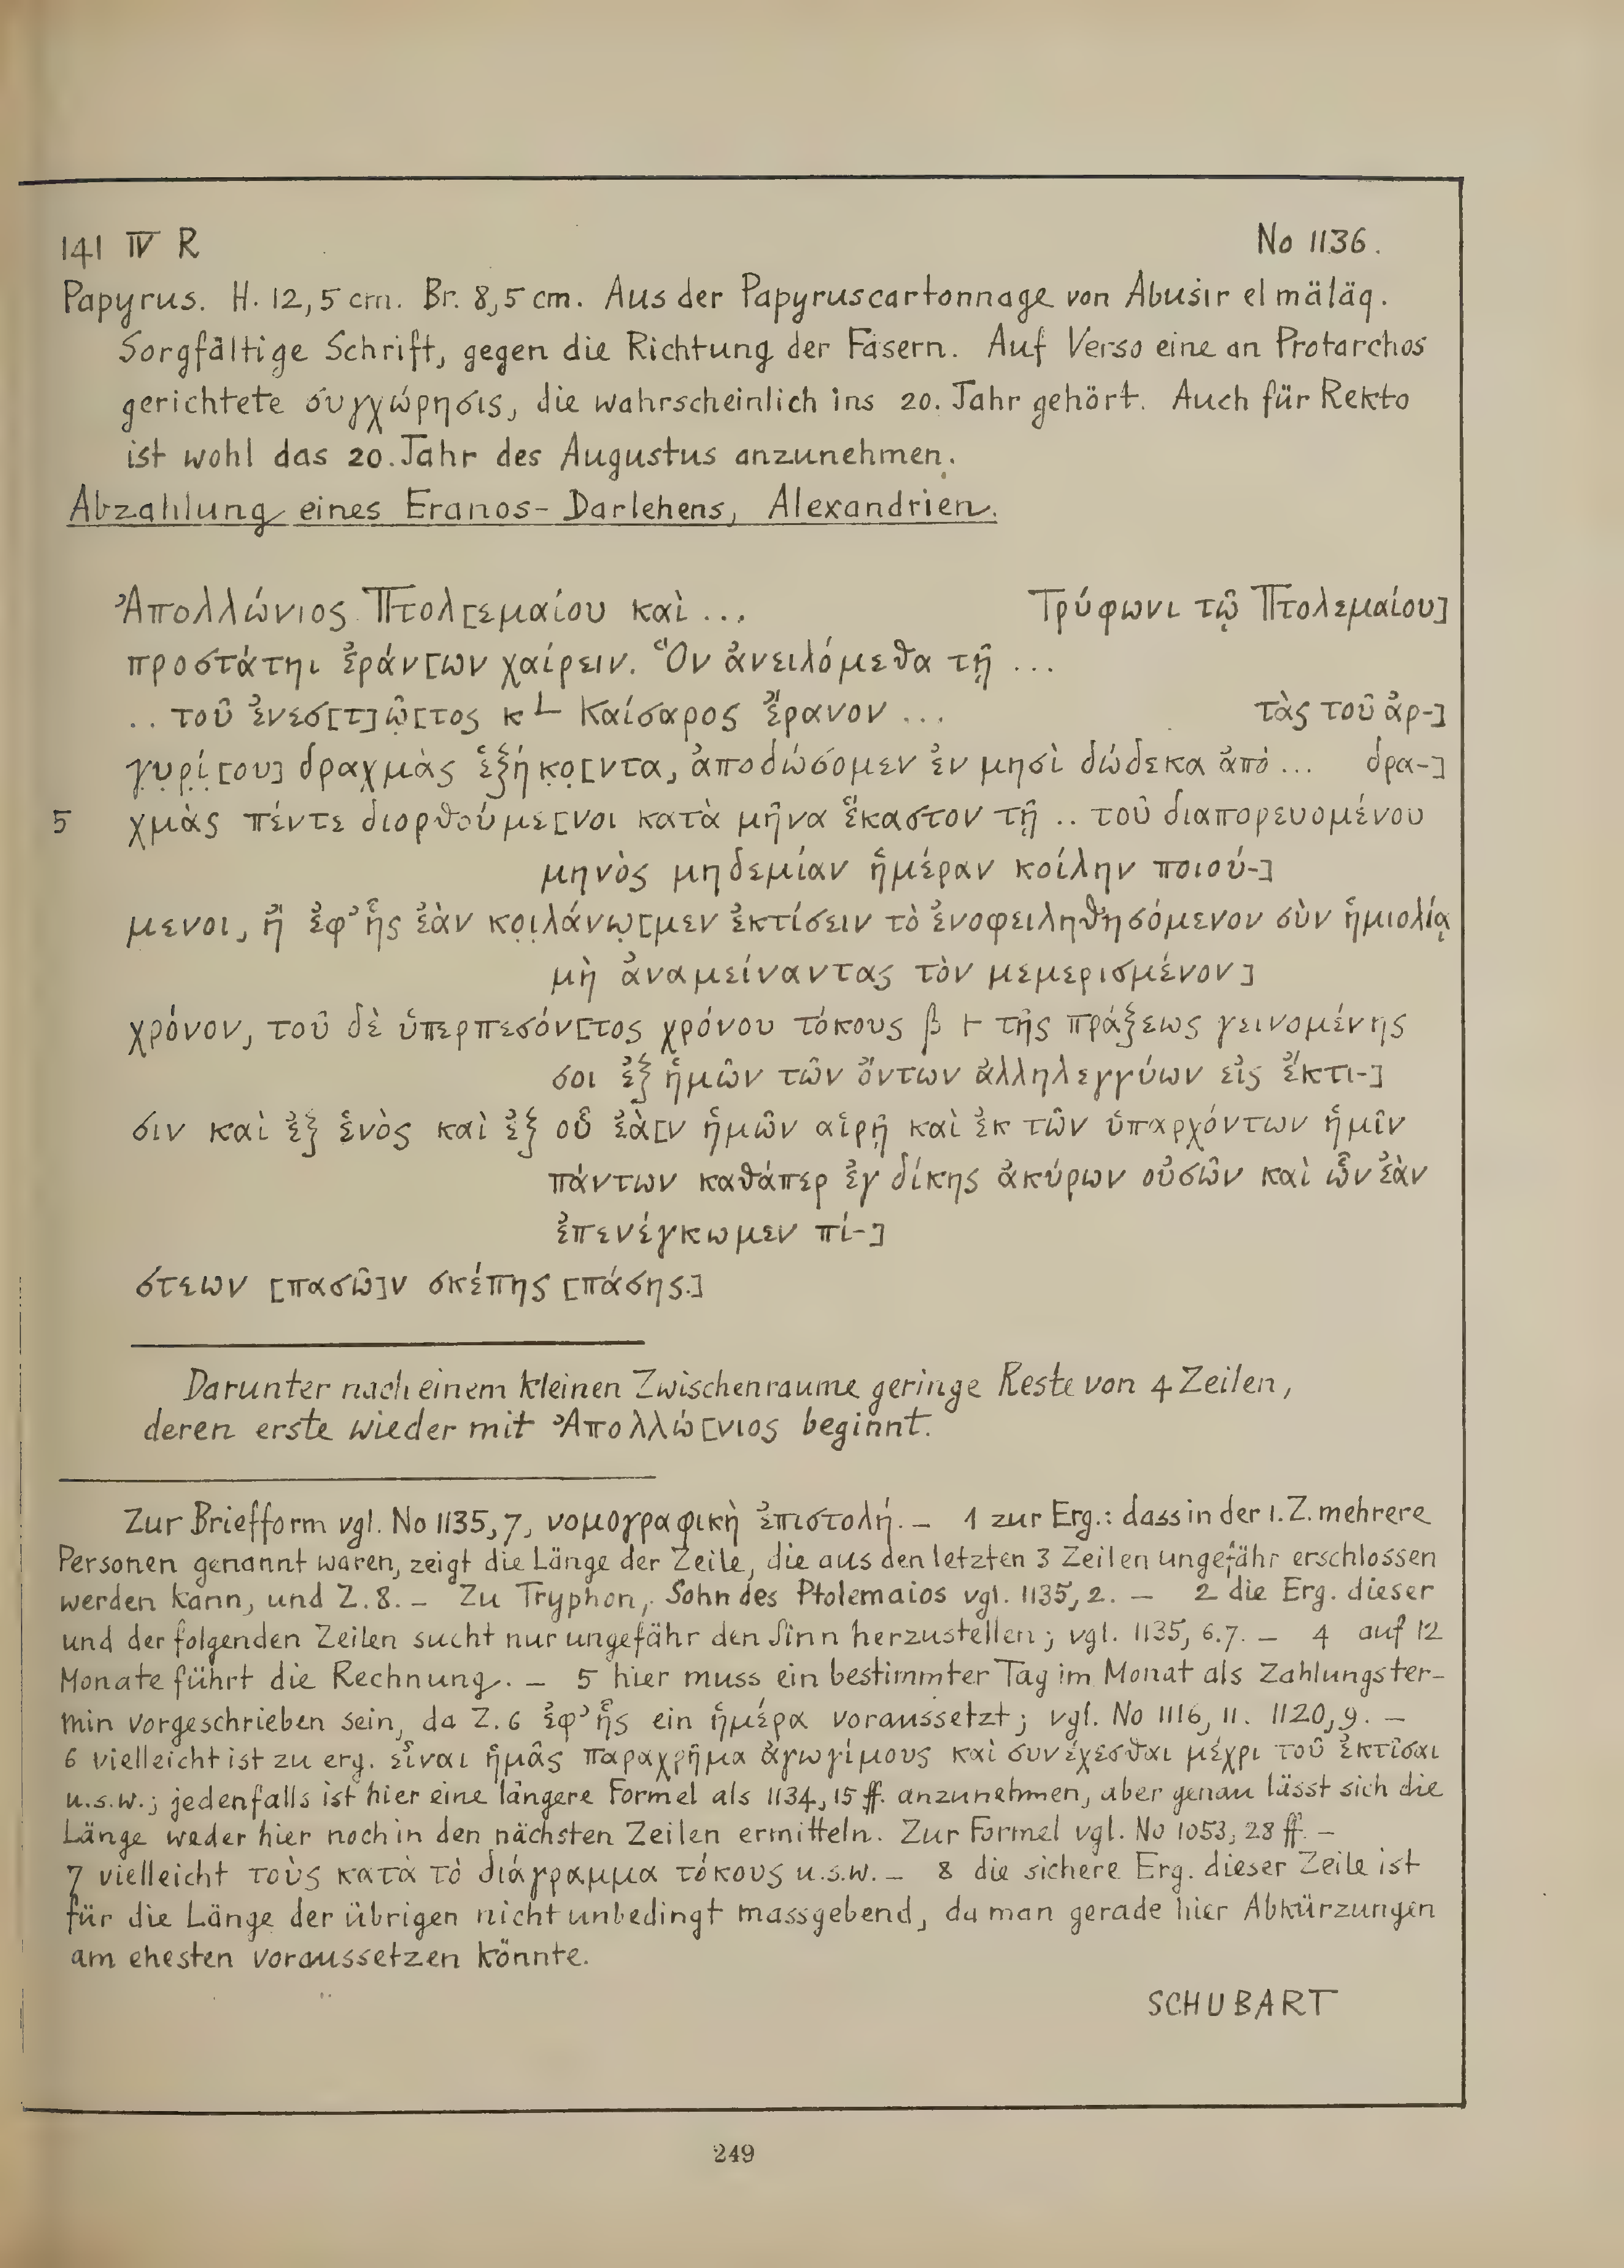 141 IV R No 1136.
Papyrus. H. 12,5 cm. Br. 8,5 cm. Aus der Papyruscartonnage von Abuṣir el mäläq.
Sorgfältige Schrift, gegen die Richtung der Fasern. Auf Verso eine an Protarchos
gerichtete συγχώρησις, die wahrscheinlich ins 20. Jahr gehört. Auch für Rekto
ist wohl das 20. Jahr des Augustus anzunehmen.
Abzahlung eines Eranos-Darlehens, Alexandrien.
Ἀπολλώνιος Πτολ[εμαίου καὶ ... Τρύφωνι τῷ Πτολεμαίου]
προστάτηι ἐράν[ων χαίρειν. Ὃν ἀνειλόμεθα τῇ ...
.. τοῦ ἐνεσ[τ]ῶ̣[τος κ L Καίσαρος ἔρανον ... τὰς τοῦ ἀρ-]
γ̣υ̣ρ̣ί̣[ου] δραχμὰς ἑξήκ̣ο̣[ντα, ἀποδώσομεν ἐν μησὶ δώδεκα ἀπὸ ... δρα-]
5 χμὰς πέντε διορθούμε[νοι κατὰ μῆνα ἕκαστον τῇ .. τοῦ διαπορευομένου
μηνὸς μηδεμίαν ἡμέραν κοίλην ποιού-]
μενοι, ἢ ἐφ’ ἧς ἐὰν κο̣ι̣λάνω̣[μεν ἐκτίσειν τὸ ἐνοφειληθησόμενον σὺν ἡμιολίᾳ
μὴ ἀναμείναντας τὸν μεμερισμένον]
χρόνον, τοῦ δὲ ὑπερπεσόν[τος χρόνου τόκους β 𐅂 τῆς πράξεως γεινομένης
σοι ἐξ ἡμῶν τῶν ὄντων ἀλληλεγγύων εἰς ἔκτι-]
σιν καὶ ἐξ ἑνὸς καὶ ἐξ οὗ ἐὰ[ν ἡμῶν αἱρῇ καὶ ἐκ τῶν ὑπαρχόντων ἡμῖν
πάντων καθάπερ ἐγ δίκης ἀκύρων οὐσῶν καὶ ὧν ἐὰν
ἐπενέγκωμεν πί-]
στεων [πασῶ]ν σκέπης [πάσης.]
Darunter nach einem kleinen Zwischenraume geringe Reste von 4 Zeilen,
deren erste wieder mit Ἀπολλώ[νιος beginnt.
Zur Briefform vgl. No 1135,7, νομογραφικὴ ἐπιστολή. – 1 zur Erg.: dass in der 1. Z. mehrere
Personen genannt waren, zeigt die Länge der Zeile, die aus den letzten 3 Zeilen ungefähr erschlossen
werden kann, und Z. 8. – Zu Tryphon, Sohn des Ptolemaios vgl. 1135, 2. – 2 die Erg. dieser
und der folgenden Zeilen sucht nur ungefähr den Sinn herzustellen; vgl. 1135, 6.7. – 4 auf 12
Monate führt die Rechnung. – 5 hier muss ein bestimmter Tag im Monat als Zahlungster-
min vorgeschrieben sein, da Z. 6 ἐφ’ ἧς ein ἡμέρα voraussetzt; vgl. No 1116, 11. 1120, 9. –
6 vielleicht ist zu erg. εἶναι ἡμᾶς παραχρῆμα ἀγωγίμους καὶ συνέχεσθαι μέχρι τοῦ ἐκτῖσαι
u.s.w.; jedenfalls ist hier eine längere Formel als 1134, 15 ff. anzunehmen, aber genau lässt sich die
Länge weder hier noch in den nächsten Zeilen ermitteln. Zur Formel vgl. No 1053, 28 ff. –
7 vielleicht τοὺς κατὰ τὸ διάγραμμα τόκους u.s.w. – 8 die sichere Erg. dieser Zeile ist
für die Länge der übrigen nicht unbedingt massgebend, da man gerade hier Abkürzungen
am ehesten voraussetzen könnte.
SCHUBART
249